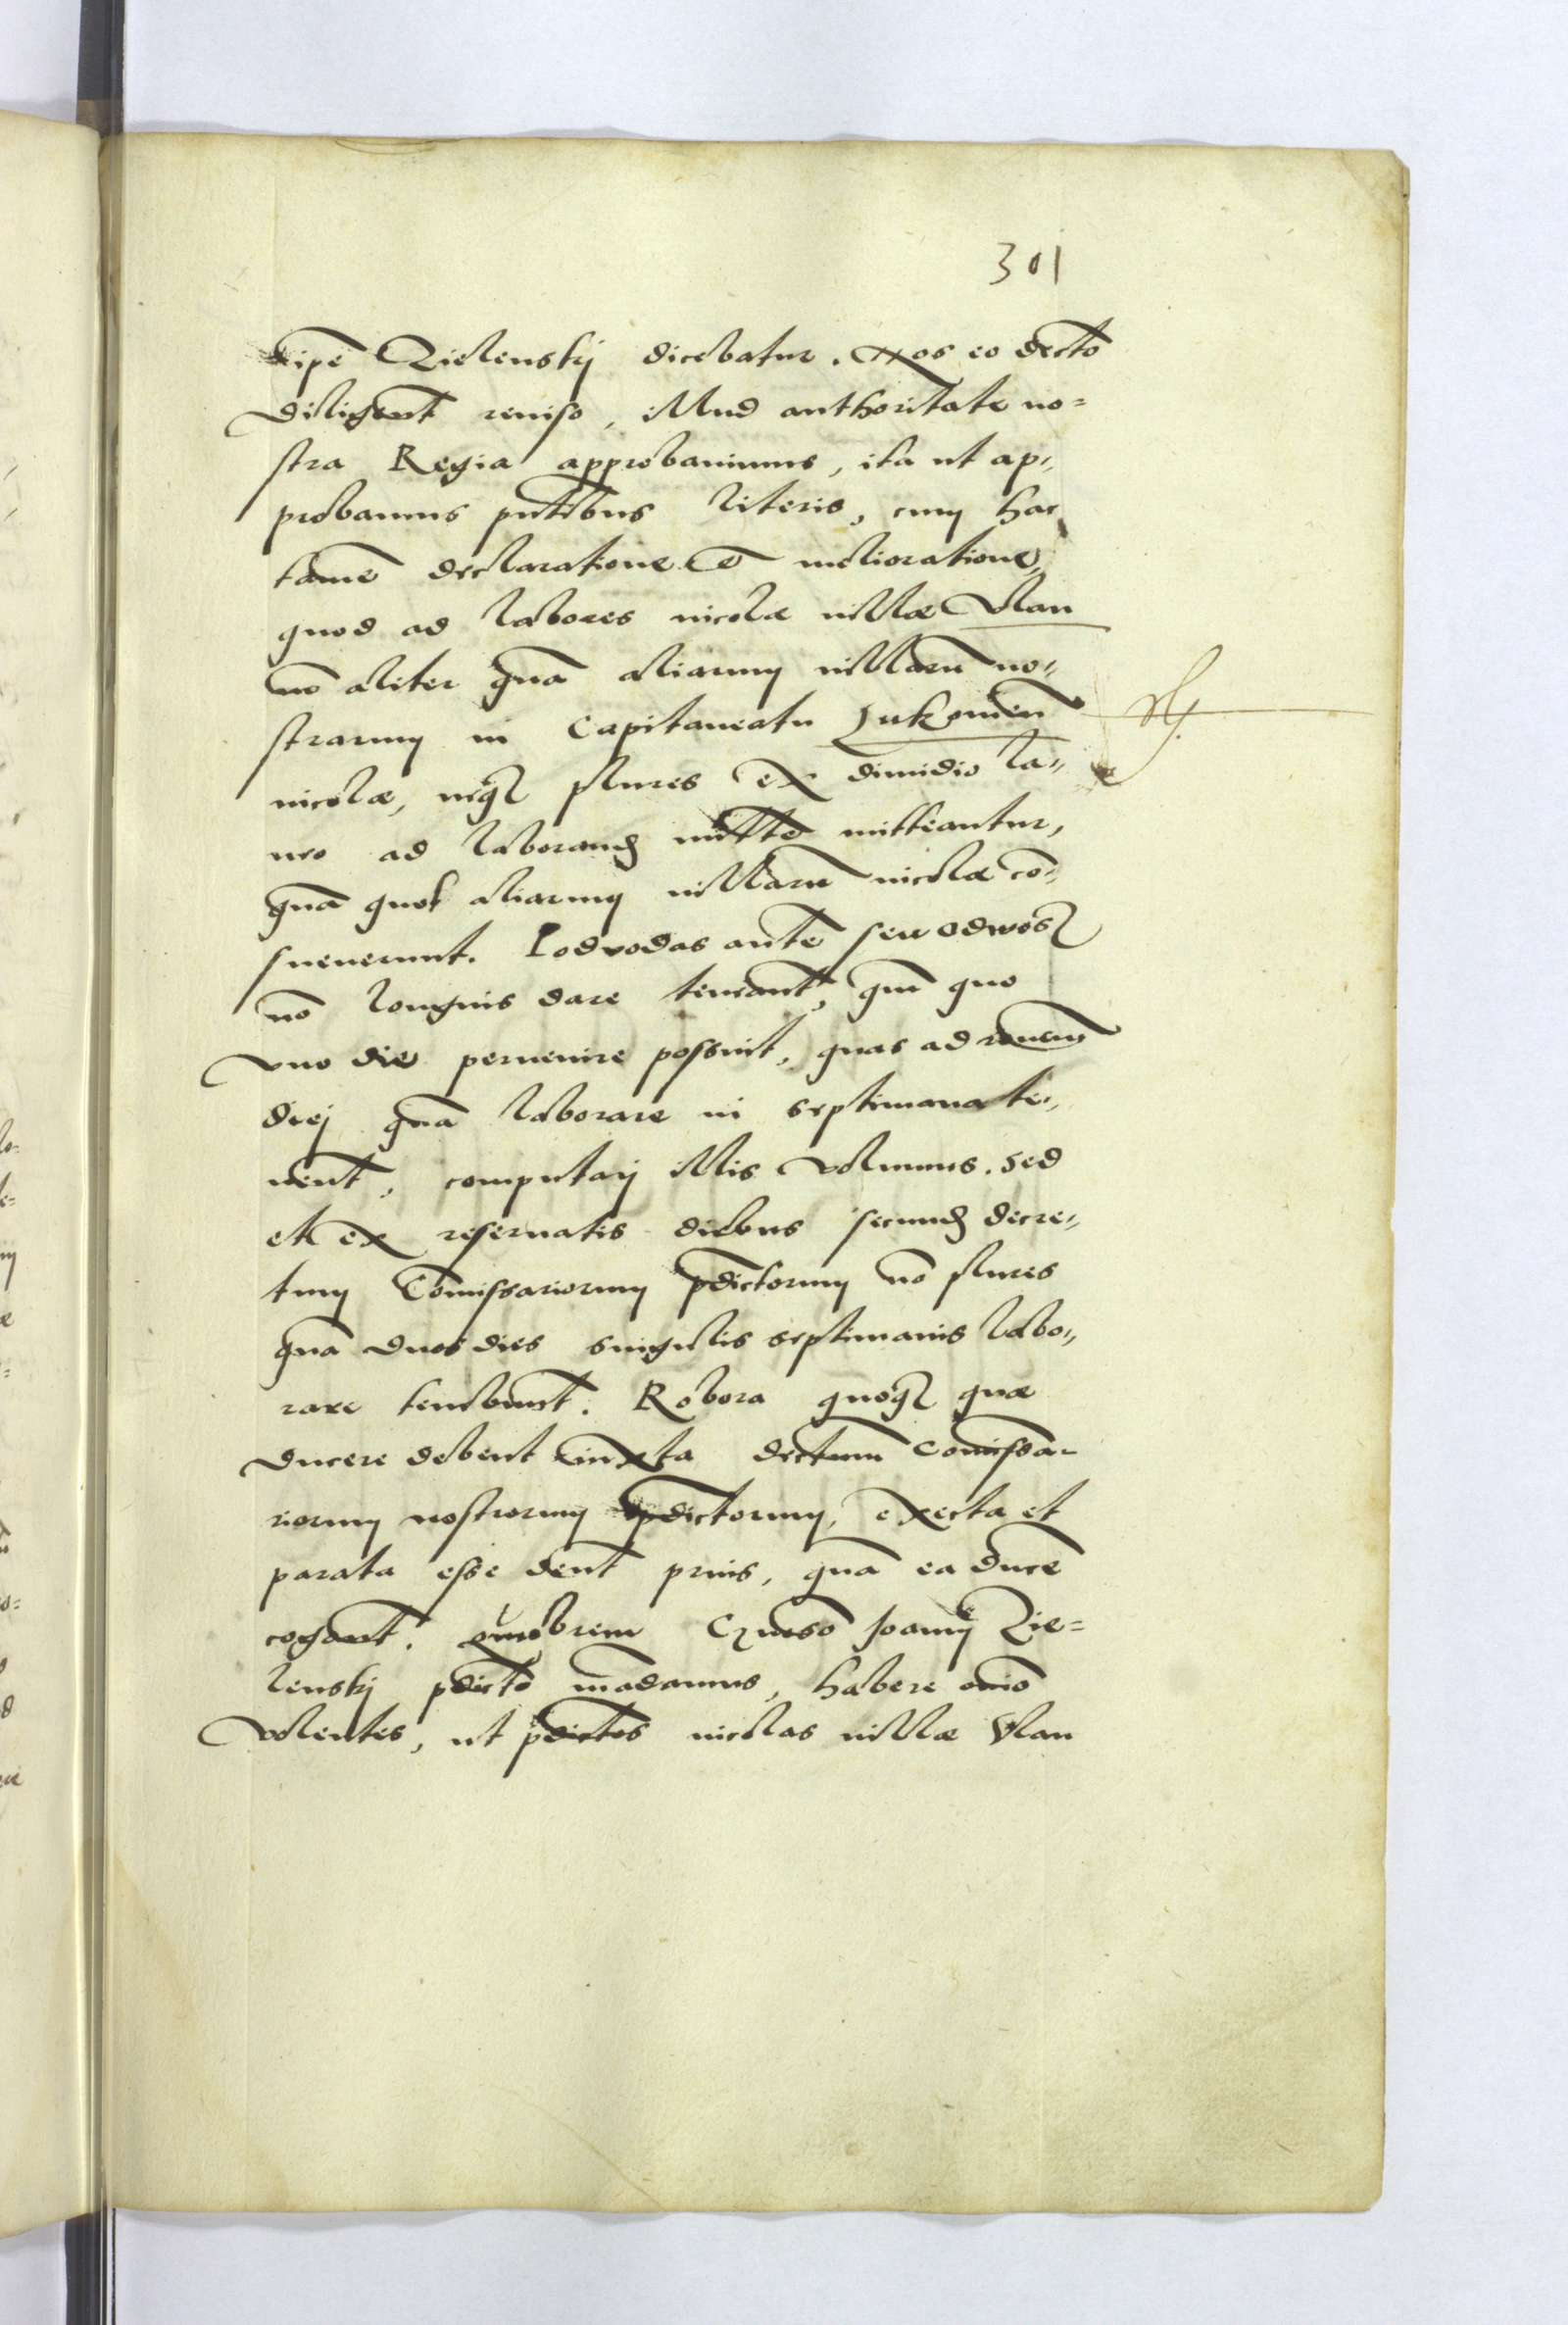 301
ipē Zielenskj dicebatur. Nos eo decto
diligent reviso, illud authoritate no=
stra Regia approbavimus, ita ut ap=
probamus pntibus literis, cum hac
tamē declaratione et melioratione,
quod ad labores incolæ villæ Vlan
nō aliter quā aliarum villarū no=
strarum in Capitaneatu Lukomen
incolæ, neqz plures ex dimidio la=
neo ad laborand mitte mitteantur,
quā quot aliarum villarū incolæ cō=
sueverunt. Podvodas autē seu odwosz
nō longius dare teneant, qm quo
vno die pervenire possint, quas ad
diej quā laborare in septimana te=
nent, computarj illis volumus. Sed
et ex reservatis diebus secund decre=
tum Comissariorum pdictorum nō plures
quā duos dies singulis septimanis labo=
rare tenebunt. Robora quoqz quæ
ducere debent iuxta dectum Comissa=
riorum nostrorum pdictorum, execta et
parata esse dent prius, quā ea duce
cogant. Quobrem Gnoso Joannj Zie=
lenskj pdicto mādamus, habere oniō
volentes, ut pdictos incolas villæ Vlan